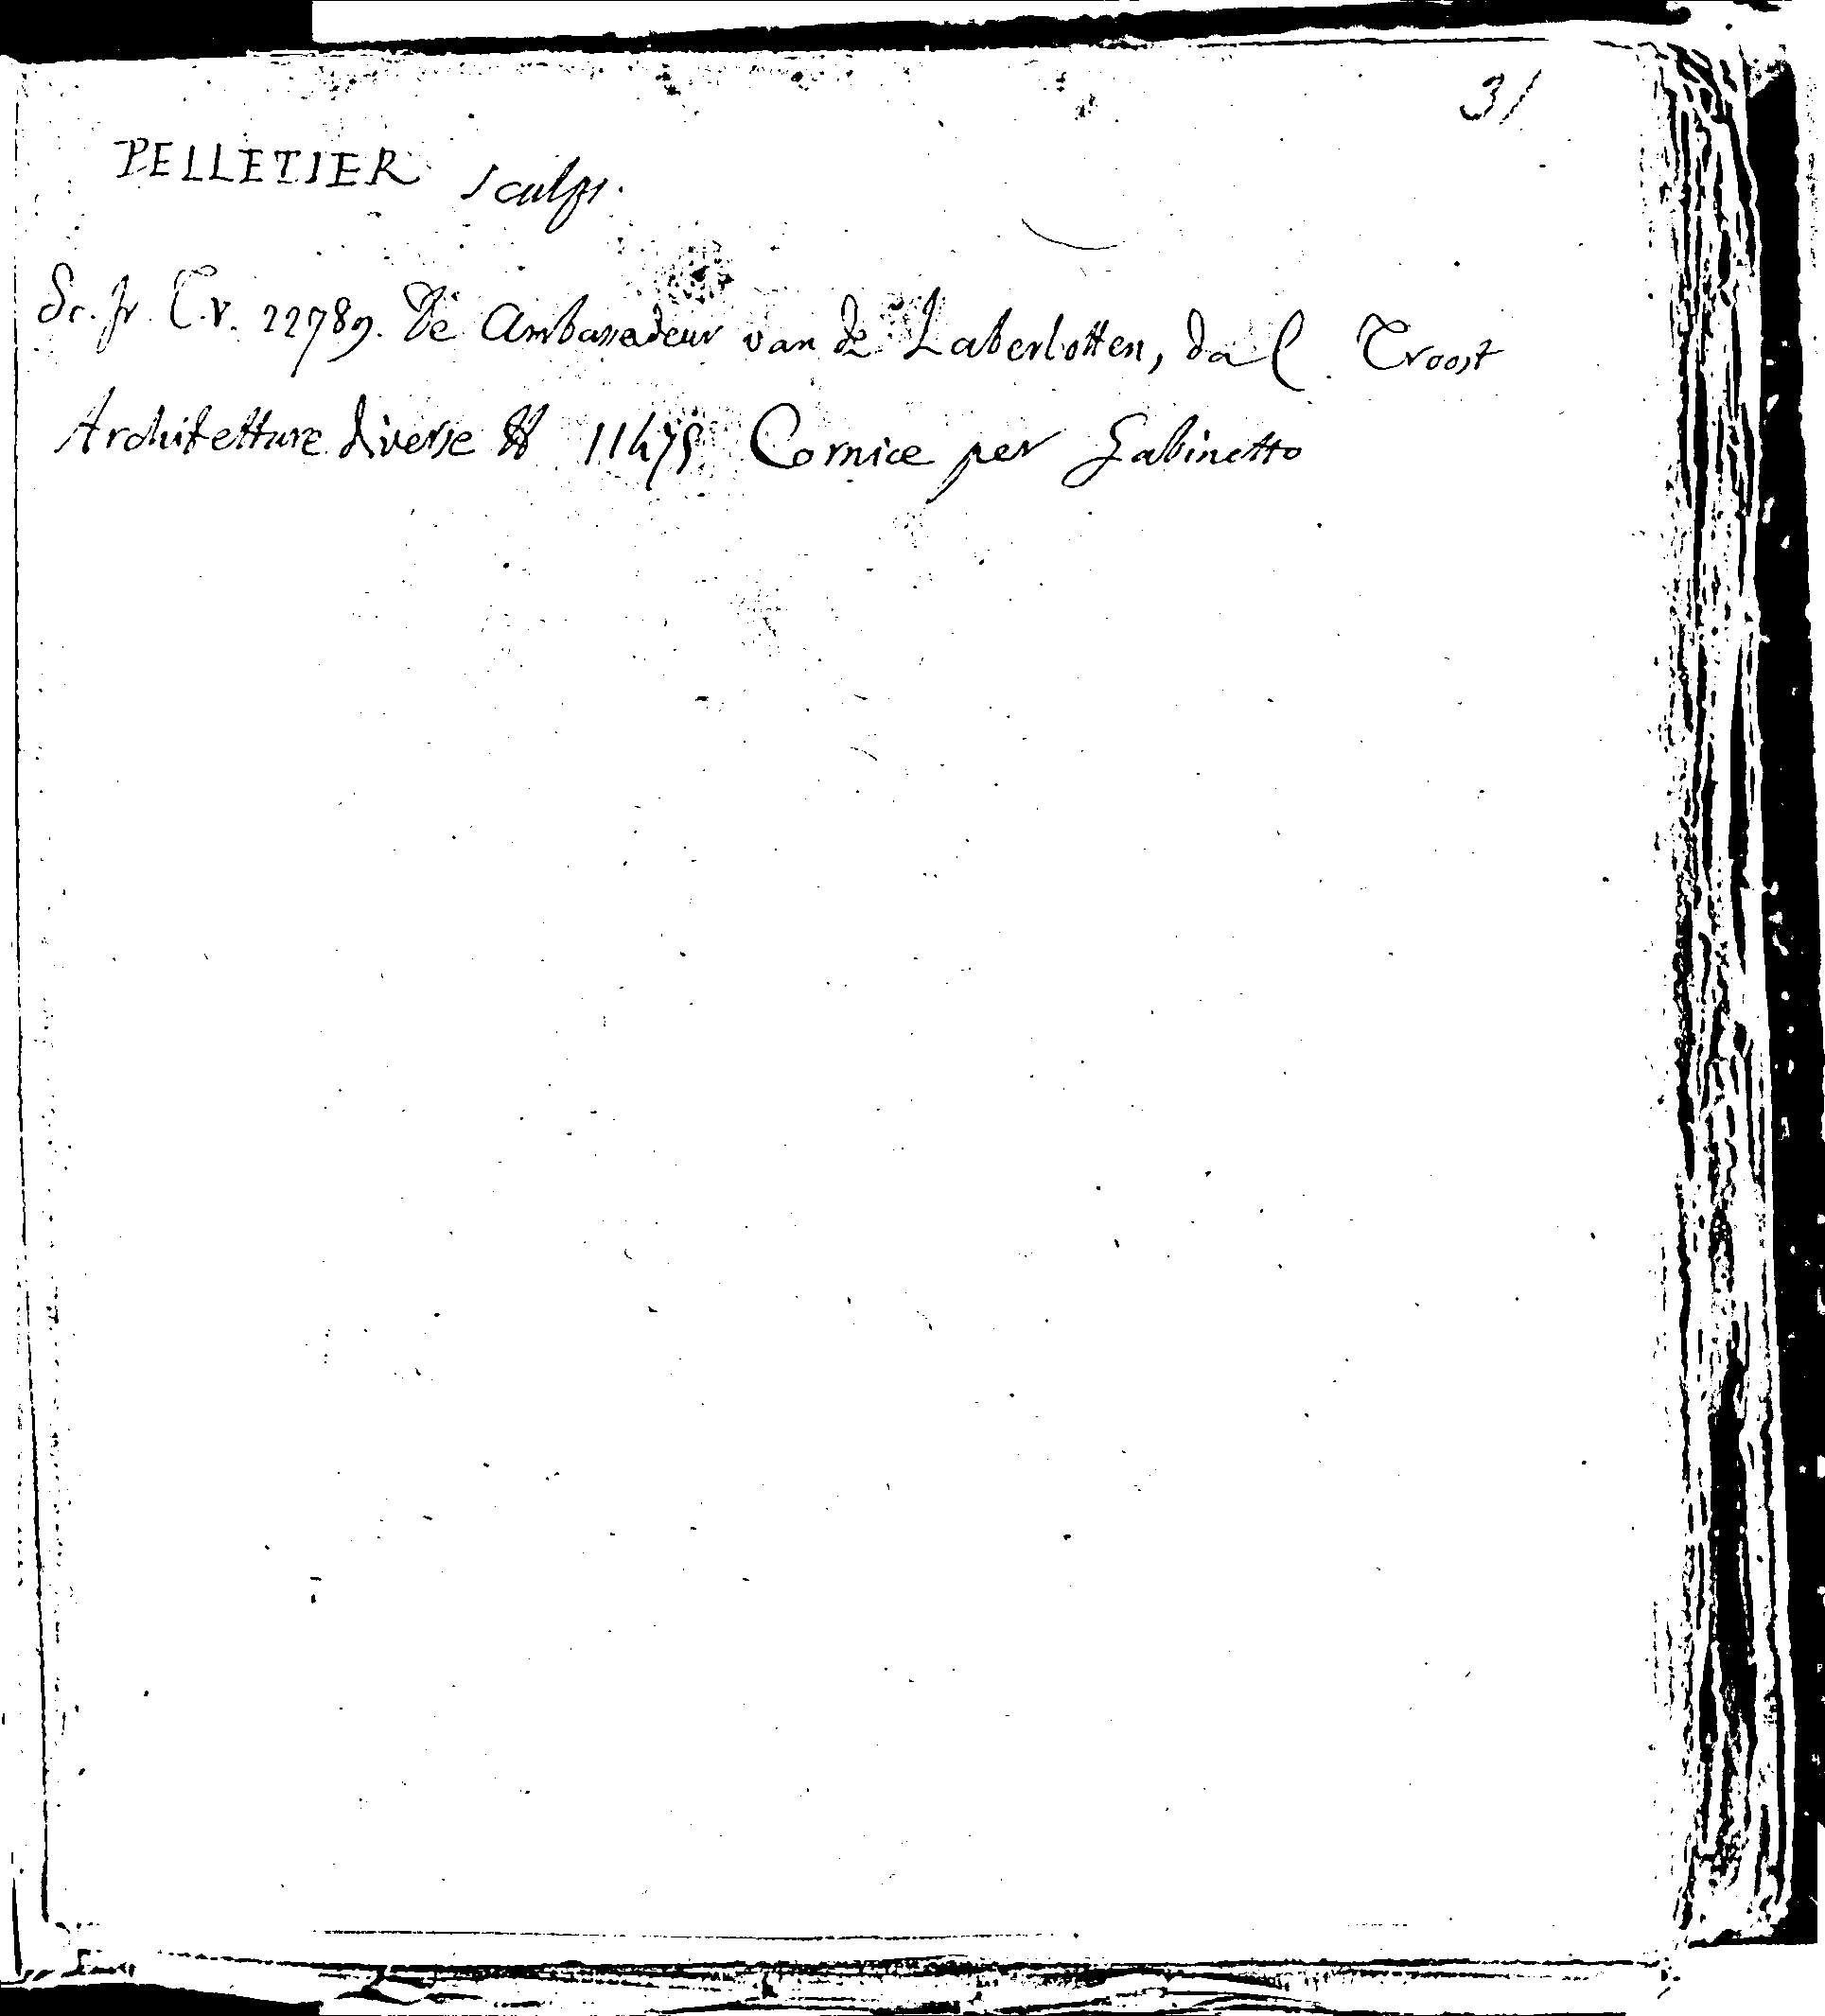 31
PELLETIER sculps.
Sc. fr. T. V. 22789. De Ambassadeur van de Laberlotten, dal Troost
Architetture diverse 11475 Cornice per Gabinetto